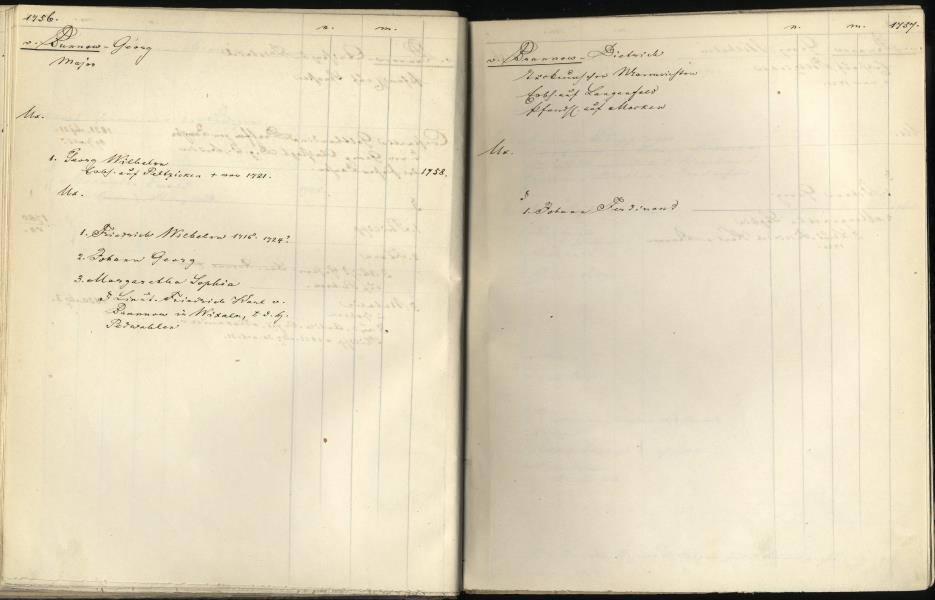 1756.
n. m.
v. Brunnow - Georg
Major
Ux.
1. Georg Wilhelm
Erbh. auf Peltzicken + vor 1721.
1758.
Ux.
1. Friedrich Wilhelm 1716. 1724?
2. Johann Georg
3. Margaretha Sophia
Lieut. Friedrich Karl v.
Brunnow in Wixeln, z. d. H.
Pedwahlen
n. m. 1757.
v. Brunnow - Dietrich
Mannrichter
Erbh. auf Langenfeld
Pfandh. auf Mescken
Ux.
1. Johann Ferdinand